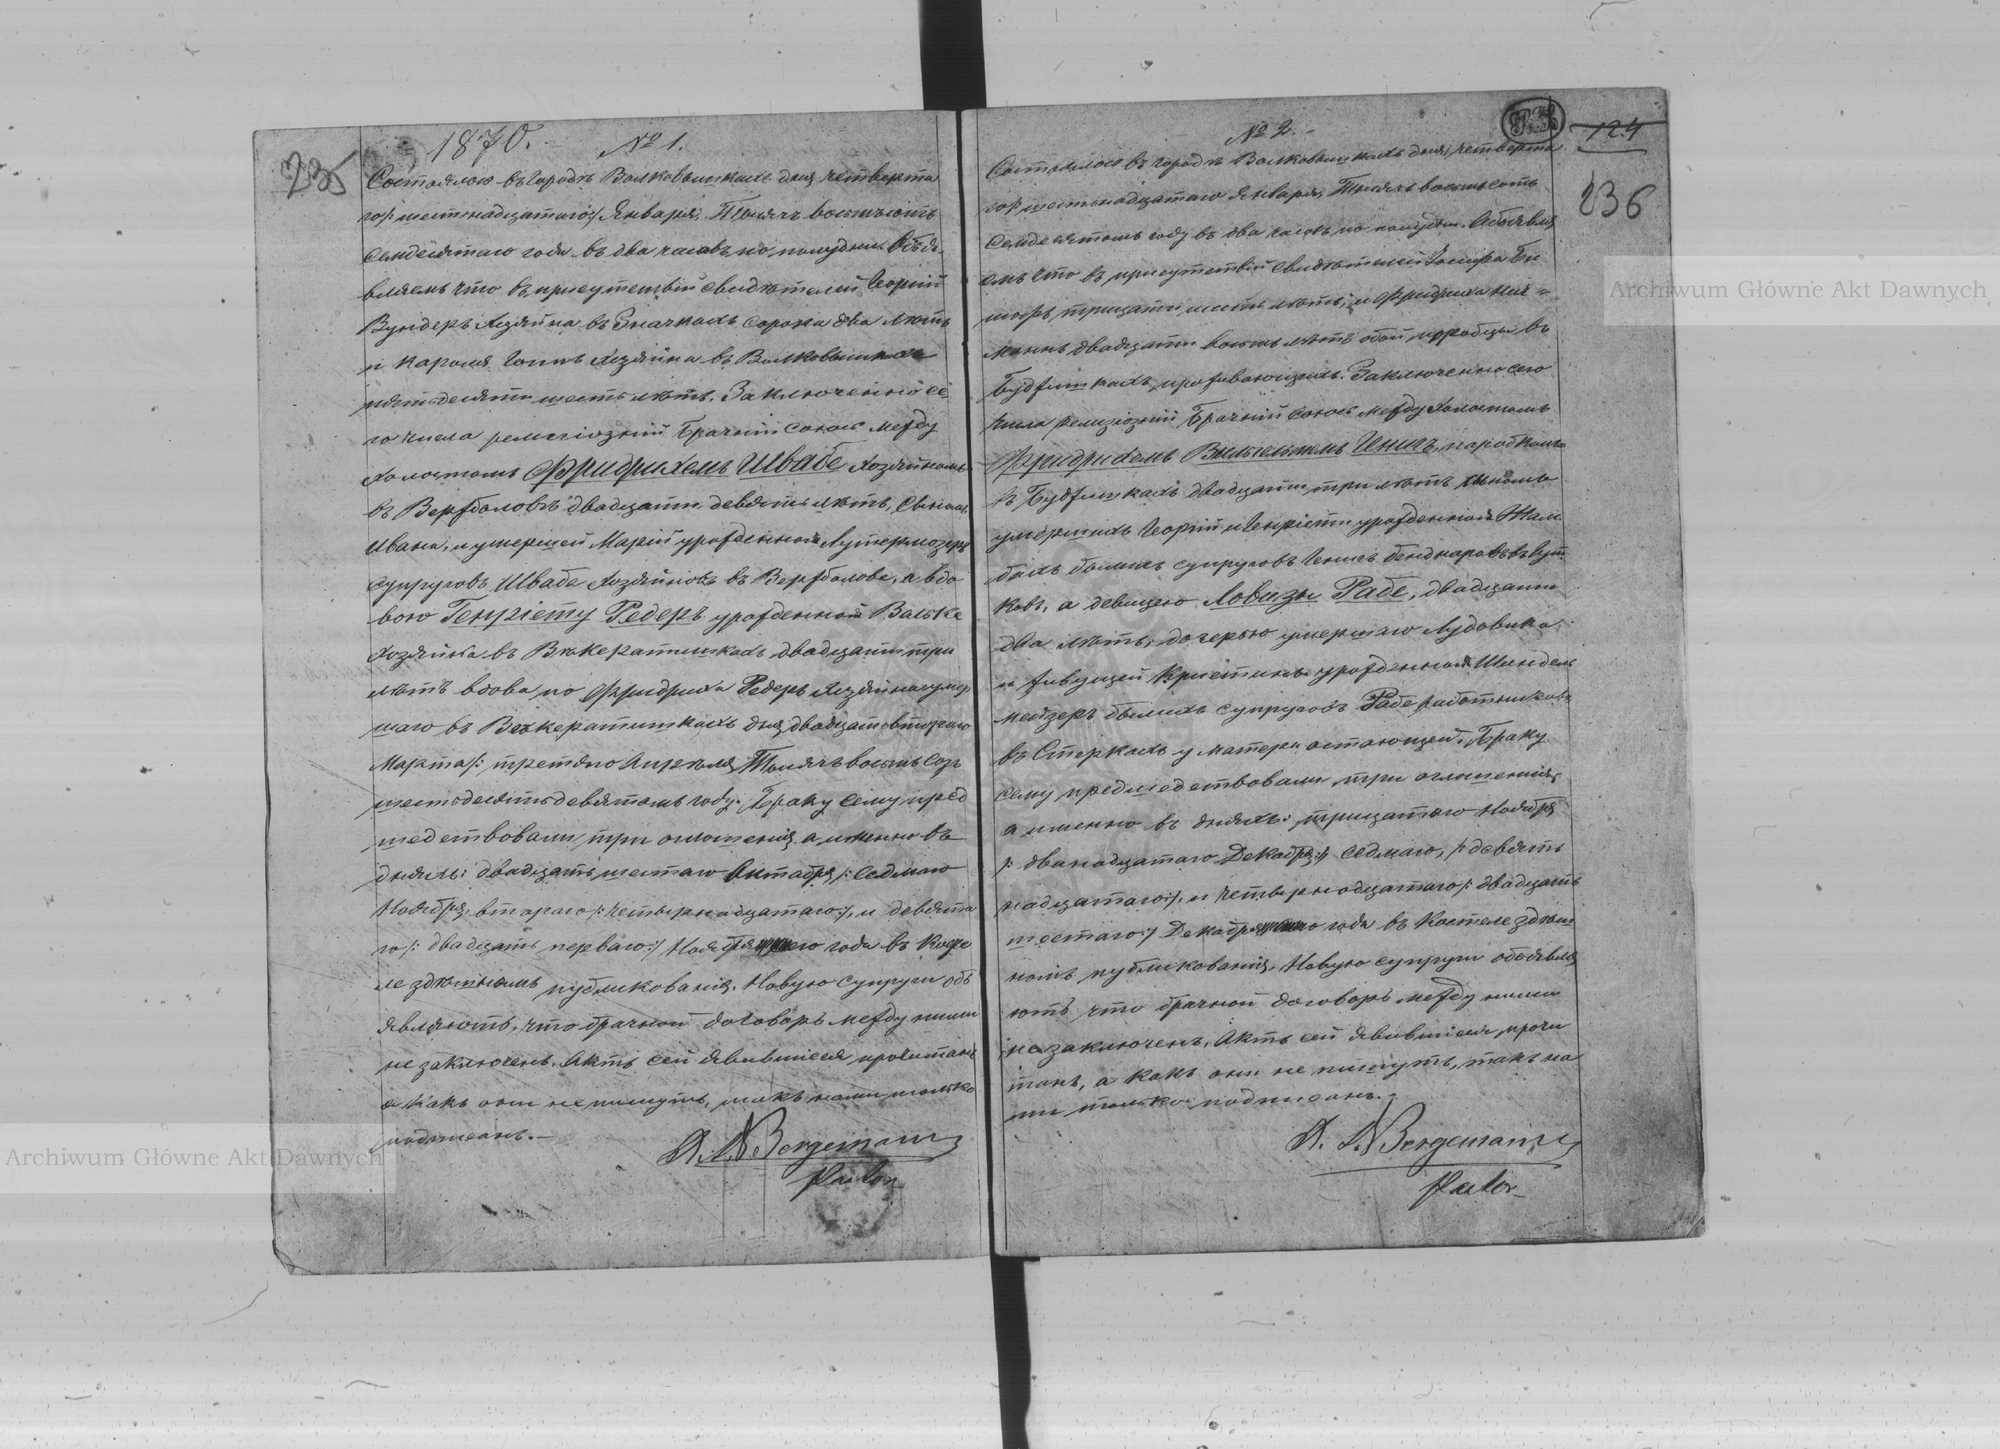 235
1870. — № 1.
Состоялось въ городѣ Волковышкахъ дня четверта
го /: шестнадцатаго :/ Января, Тысяча восемьсотъ
семдесятаго года въ два часовъ по полудни. Объя-
вляемъ что въ присутствіи свидѣтелей Георгій
Вундеръ хозяина въ сорока два лѣтъ
и Кароля хозяина въ Волковышкахъ
пятьдесяти шесть лѣтъ. Заключенно се
го числа религіозній брачній союзъ между
холостымъ Фридрихемъ Швабе хозяйномъ
въ Вержболовѣ двадцати девять лѣтъ, сыномъ
Ивана, и умершей Маріи урожденной
супруговъ Швабе хозяйновъ въ Вержболове, а вдо
вою Генріету Редеръ урожденной Вальке
хозяйка въ двадцати три
лѣтъ вдова по Фридриха Редеръ хозяйна умер
шаго въ дня двадцать втораго
Марта /: третяго Апрѣля, Тысяча восемьсотъ
шестьдесятъ девятомъ году. Браку сему пред
шедствовали три оглошенія а именно въ
дняхъ: двадцать шестаго Октабря /: седмаго
Ноября, втораго /: четырнадцатаго :/, и девята
го /: двадцать перваго :/ Ноября года въ Косте
ле здѣшномъ публикованія. Новую супруги объ
являютъ, что брачной договоръ между ними
не заключенъ. Актъ сей явившіеся прочитанъ
а какъ они не пишутъ, такъ нами только
подписанъ. —
Bergemann
Pastor
№ 2. —
124
236
Состоялось въ городѣ Волковышкахъ дня четверта
го /: шестьнадцатаго Января, Тысяча восемьсотъ
семдесятомъ году въ два часовъ по полудни. Объявля
емъ что въ присутствіи свидѣтелей Іосифа Би
шофъ, трицати шесть лѣтъ, и Фридриха
двадцати восемь лѣтъ обои паробцы въ
проживающихъ. Заключенно сего
числа религіозній брачній союзъ между холостымъ
Фридрихемъ Вильгельмъ паробкомъ
въ двадцати три лѣтъ сыномъ
умершихъ Георгіи и Генріети урожденной
былихъ супруговъ
а девицею Ловизы Рабе, двадцати
два лѣтъ, дочерью умершаго Лудовика
и живущей Кристины урожденной Шиндель
мейзеръ былихъ супруговъ Рабе работниковъ
въ Стеркахъ у матери остающей. Браку
сему предшедствовали три оглошенія,
а именно въ дняхъ: трицатаго Ноября
/: дванадцатаго Декабря :/ седмаго, /: девять
надцатаго :/, и четырнадцатаго /: двадцать
шестаго :/ Декабря года въ Костеле здѣш
номъ публикованія. Новую супруги объявля
ютъ что брачной договоръ между ними
не заключенъ. Актъ сей явившіеся прочи
танъ, а какъ они не пишутъ, такъ на
ми только подписанъ. —
Bergemann
Pastor
Archiwum Główne Akt Dawnych
Archiwum Główne Akt Dawnych